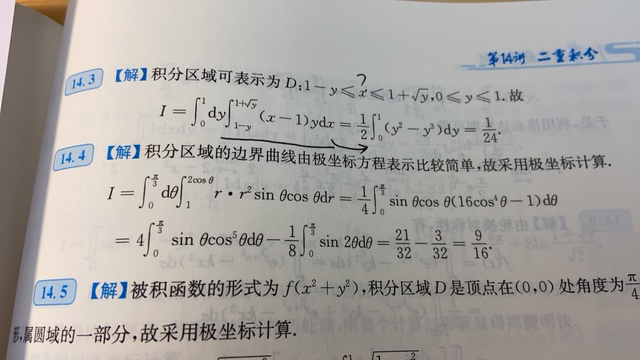 第14讲 二重积分
?
14.3 【解】积分区域可表示为 D:1−y≤x≤1+√y,0≤y≤1.故
I=∫₀¹dy∫_{1−y}^{1+√y}(x−1)ydx=1/2∫₀¹(y²−y³)dy=1/24.
14.4 【解】积分区域的边界曲线由极坐标方程表示比较简单,故采用极坐标计算.
I=∫₀^{π/3}dθ∫₁^{2cos θ}r·r²sin θcos θdr=1/4∫₀^{π/3}sin θcos θ(16cos⁴θ−1)dθ
=4∫₀^{π/3}sin θcos⁵θdθ−1/8∫₀^{π/3}sin 2θdθ=21/32−3/32=9/16.
14.5 【解】被积函数的形式为 f(x²+y²),积分区域 D 是顶点在(0,0)处角度为π/4
形,属圆域的一部分,故采用极坐标计算.